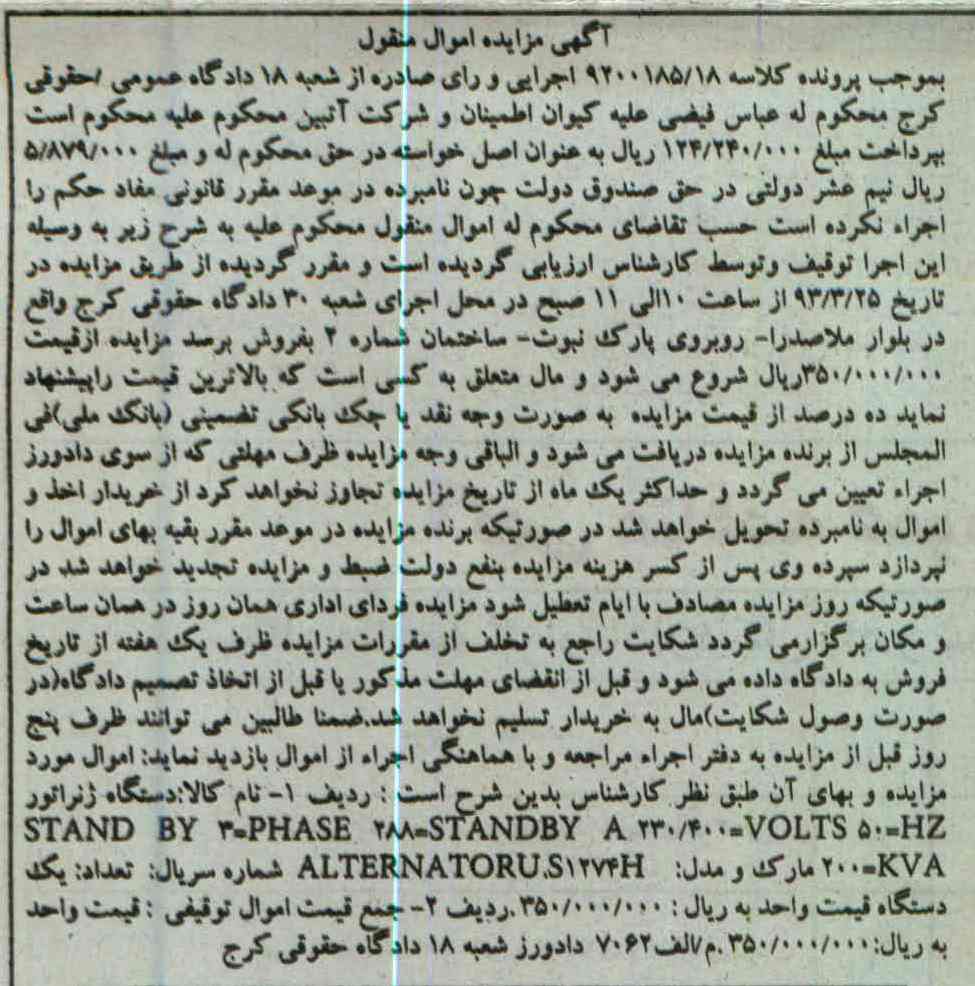 آگهی مزایده اموال منقول
بموجب پرونده کلاسه ۹۲۰۰۱۸۵/۱۸ اجرایی و رای صادره از شعبه ۱۸ دادگاه عمومی /حقوقی
کرج محکوم له عباس فیضی علیه کیوان اطمینان و شرکت آتبین محکوم علیه محکوم است
بپرداخت مبلغ ۱۲۴/۲۴۰/۰۰۰ ریال به عنوان اصل خواسته در حق محکوم له و مبلغ ۵/۸۷۹/۰۰۰
ریال نیم عشر دولتی در حق صندوق دولت چون نامبرده در موعد مقرر قانونی مفاد حکم را
اجراء نکرده است حسب تقاضای محکوم له اموال منقول محکوم علیه به شرح زیر به وسیله
این اجرا توقیف وتوسط کارشناس ارزیابی گردیده است و مقرر گردیده از طریق مزایده در
تاریخ ۹۳/۳/۲۵ از ساعت ۱۰الی ۱۱ صبح در محل اجرای شعبه ۳۰ دادگاه حقوقی کرج واقع
در بلوار ملاصدرا- روبروی پارک نبوت- ساختمان شماره ۲ بفروش برسد مزایده ازقیمت
۳۵۰/۰۰۰/۰۰۰ریال شروع می شود و مال متعلق به کسی است که بالاترین قیمت راپیشنهاد
نماید ده درصد از قیمت مزایده به صورت وجه نقد یا چک بانکی تضمینی (بانک ملی)فی
المجلس از برنده مزایده دریافت می شود و الباقی وجه مزایده ظرف مهلتی که از سوی دادورز
اجراء تعیین می گردد و حداکثر یک ماه از تاریخ مزایده تجاوز نخواهد کرد از خریدار اخذ و
اموال به نامبرده تحویل خواهد شد در صورتیکه برنده مزایده در موعد مقرر بقیه بهای اموال را
نپردازد سپرده وی پس از کسر هزینه مزایده بنفع دولت ضبط و مزایده تجدید خواهد شد در
صورتیکه روز مزایده مصادف با ایام تعطیل شود مزایده فردای اداری همان روز در همان ساعت
و مکان برگزارمی گردد شکایت راجع به تخلف از مقررات مزایده ظرف یک هفته از تاریخ
فروش به دادگاه داده می شود و قبل از انقضای مهلت مذکور یا قبل از اتخاذ تصمیم دادگاه(در
صورت وصول شکایت)مال به خریدار تسلیم نخواهد شد.ضمنا طالبین می توانند ظرف پنج
روز قبل از مزایده به دفتر اجراء مراجعه و با هماهنگی اجراء از اموال بازدید نماید: اموال مورد
مزایده و بهای آن طبق نظر کارشناس بدین شرح است : ردیف ۱- نام کالا:دستگاه ژنراتور
STAND BY ۳=PHASE ۲۸۸=STANDBY A ۲۳۰/۴۰۰=VOLTS ۵۰=HZ
۲۰۰=KVA مارک و مدل: ALTERNATORU.S۱۲۷۴H شماره سریال: تعداد: یک
دستگاه قیمت واحد به ریال : ۳۵۰/۰۰۰/۰۰۰ .ردیف ۲- جمع قیمت اموال توقیفی : قیمت واحد
به ریال:۳۵۰/۰۰۰/۰۰۰ .م/الف۷۰۶۲ دادورز شعبه ۱۸ دادگاه حقوقی کرج